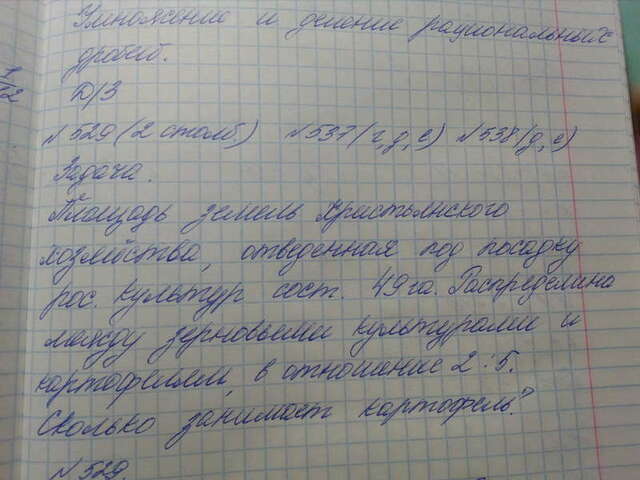 Умножение и деление рациональных
дробей.
Д/З
N 529 (2 столб.) N 537 (г, д, е) N 538 (д, е)
Задача.
Площадь земель христьянского
хозяйства, отведенная под посадку
рос. культур сост. 49 га. Распределина
между зерновыми культурами и
картофелем, в отношение 2:5.
Сколько занимает картофель?
N 529.